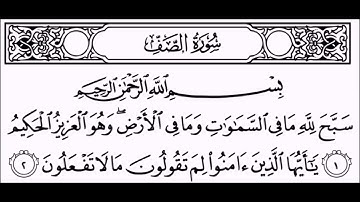 سُورَةُ الصَّفِّ
بِسْمِ اللَّهِ الرَّحْمَٰنِ الرَّحِيمِ
سَبَّحَ لِلَّهِ مَا فِي السَّمَٰوَٰتِ وَمَا فِي الْأَرْضِ ۖ وَهُوَ الْعَزِيزُ الْحَكِيمُ
١ يَٰٓأَيُّهَا الَّذِينَ ءَامَنُوا لِمَ تَقُولُونَ مَا لَا تَفْعَلُونَ ٢